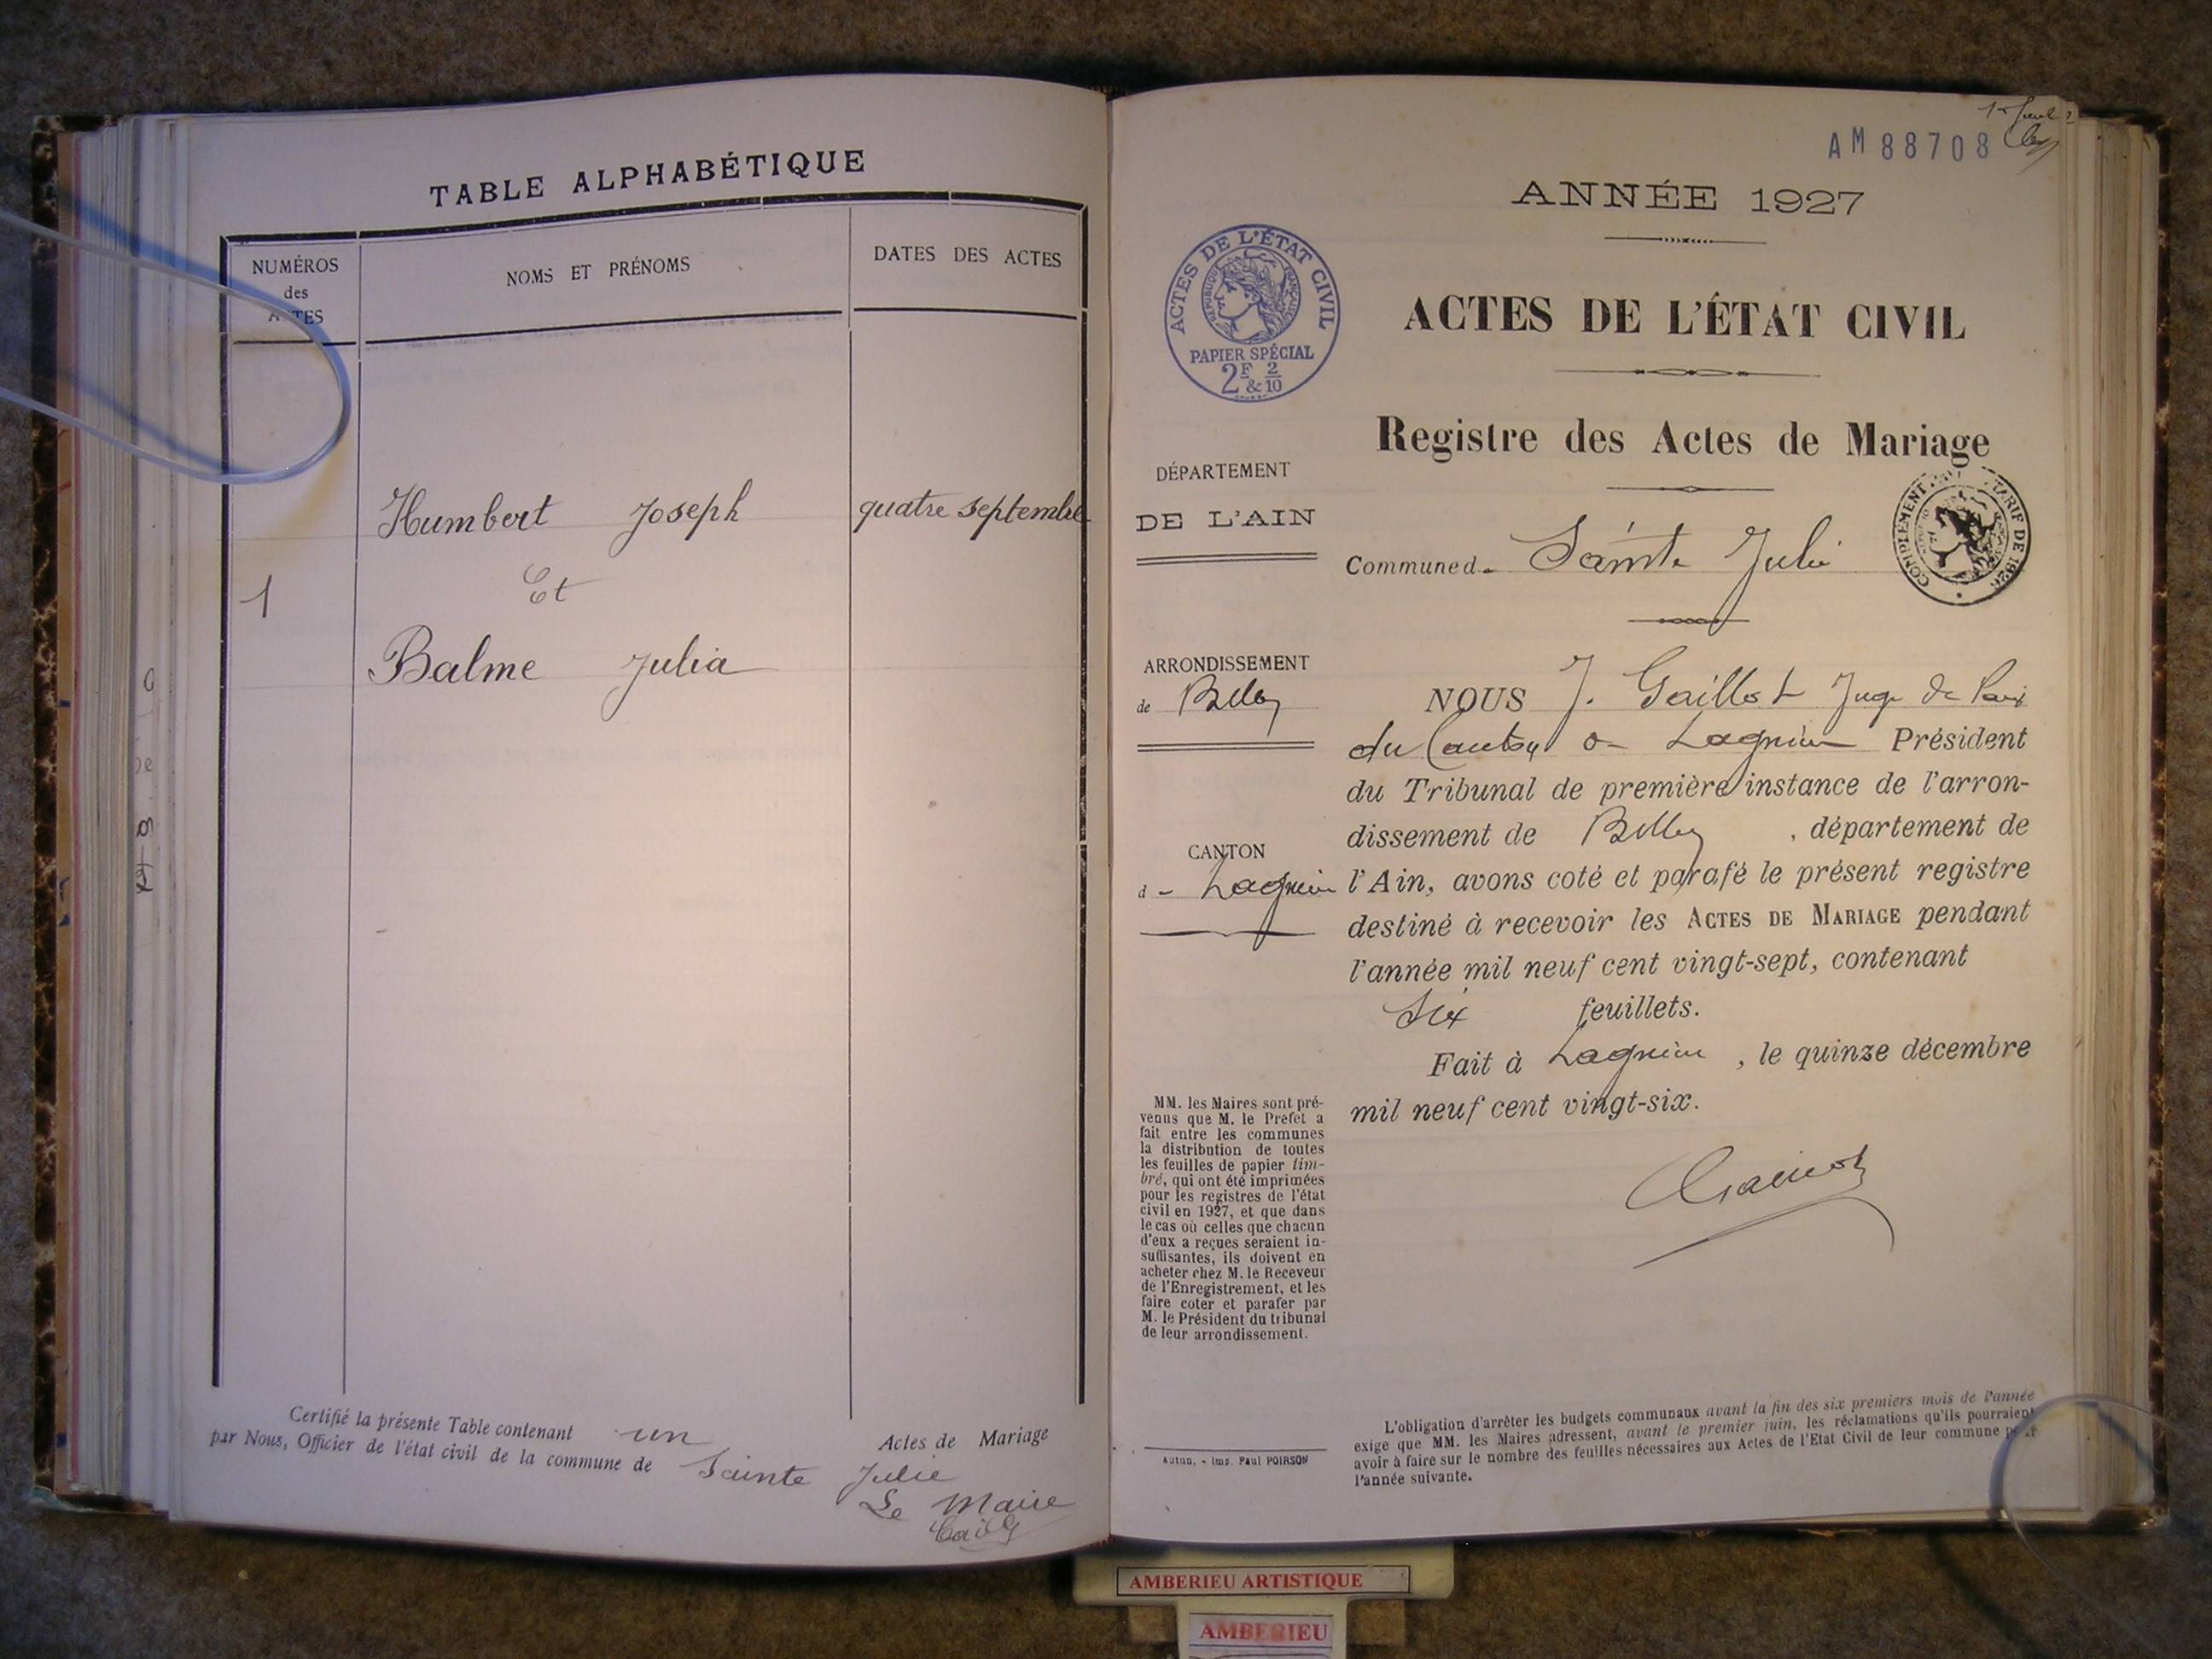 TABLE ALPHABÉTIQUE
NUMÉROS
des
ACTES
NOMS ET PRÉNOMS
DATES DES ACTES
Humbert Joseph quatre septembre
1 Et
Balme Julia
Certifié la présente Table contenant un Actes de Mariage
par Nous, Officier de l'état civil de la commune de Sainte Julie
Le Maire
AM 88708
ANNÉE 1927
ACTES DE L'ÉTAT CIVIL
RÉPUBLIQUE FRANÇAISE
PAPIER SPÉCIAL
2F & 2/10
ACTES DE L'ÉTAT CIVIL
Registre des Actes de Mariage
COMPLÉMENT TARIF DE 1926
DÉPARTEMENT
DE L'AIN
Commune d- Sainte Julie
ARRONDISSEMENT
de Belley
CANTON
d- Lagnieu
NOUS J. Gaillot Juge de Paix
du Canton de Lagnieu Président
du Tribunal de première instance de l'arron-
dissement de Belley , département de
l'Ain, avons coté et parafé le présent registre
destiné à recevoir les ACTES DE MARIAGE pendant
l'année mil neuf cent vingt-sept, contenant
Six feuillets.
Fait à Lagnieu , le quinze décembre
mil neuf cent vingt-six.
MM. les Maires sont pré-
venus que M. le Préfet a
fait entre les communes
la distribution de toutes
les feuilles de papier tim-
bré, qui ont été imprimées
pour les registres de l'état
civil en 1927, et que dans
le cas où celles que chacun
d'eux a reçues seraient in-
suffisantes, ils doivent en
acheter chez M. le Receveur
de l'Enregistrement, et les
faire coter et parafer par
M. le Président du tribunal
de leur arrondissement.
Autun. - Imp. Paul POIRSON
L'obligation d'arrêter les budgets communaux avant la fin des six premiers mois de l'année
exige que MM. les Maires adressent, avant le premier juin, les réclamations qu'ils pourraient
avoir à faire sur le nombre des feuilles nécessaires aux Actes de l'Etat Civil de leur commune pour
l'année suivante.
AMBERIEU ARTISTIQUE
AMBERIEU